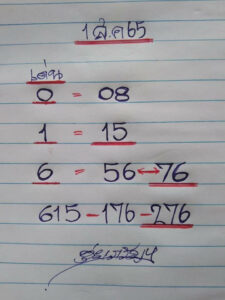 1 ส.ค 65
เด่น
0 = 08
1 = 15
6 = 56 ↔ 76
615 - 176 - 276